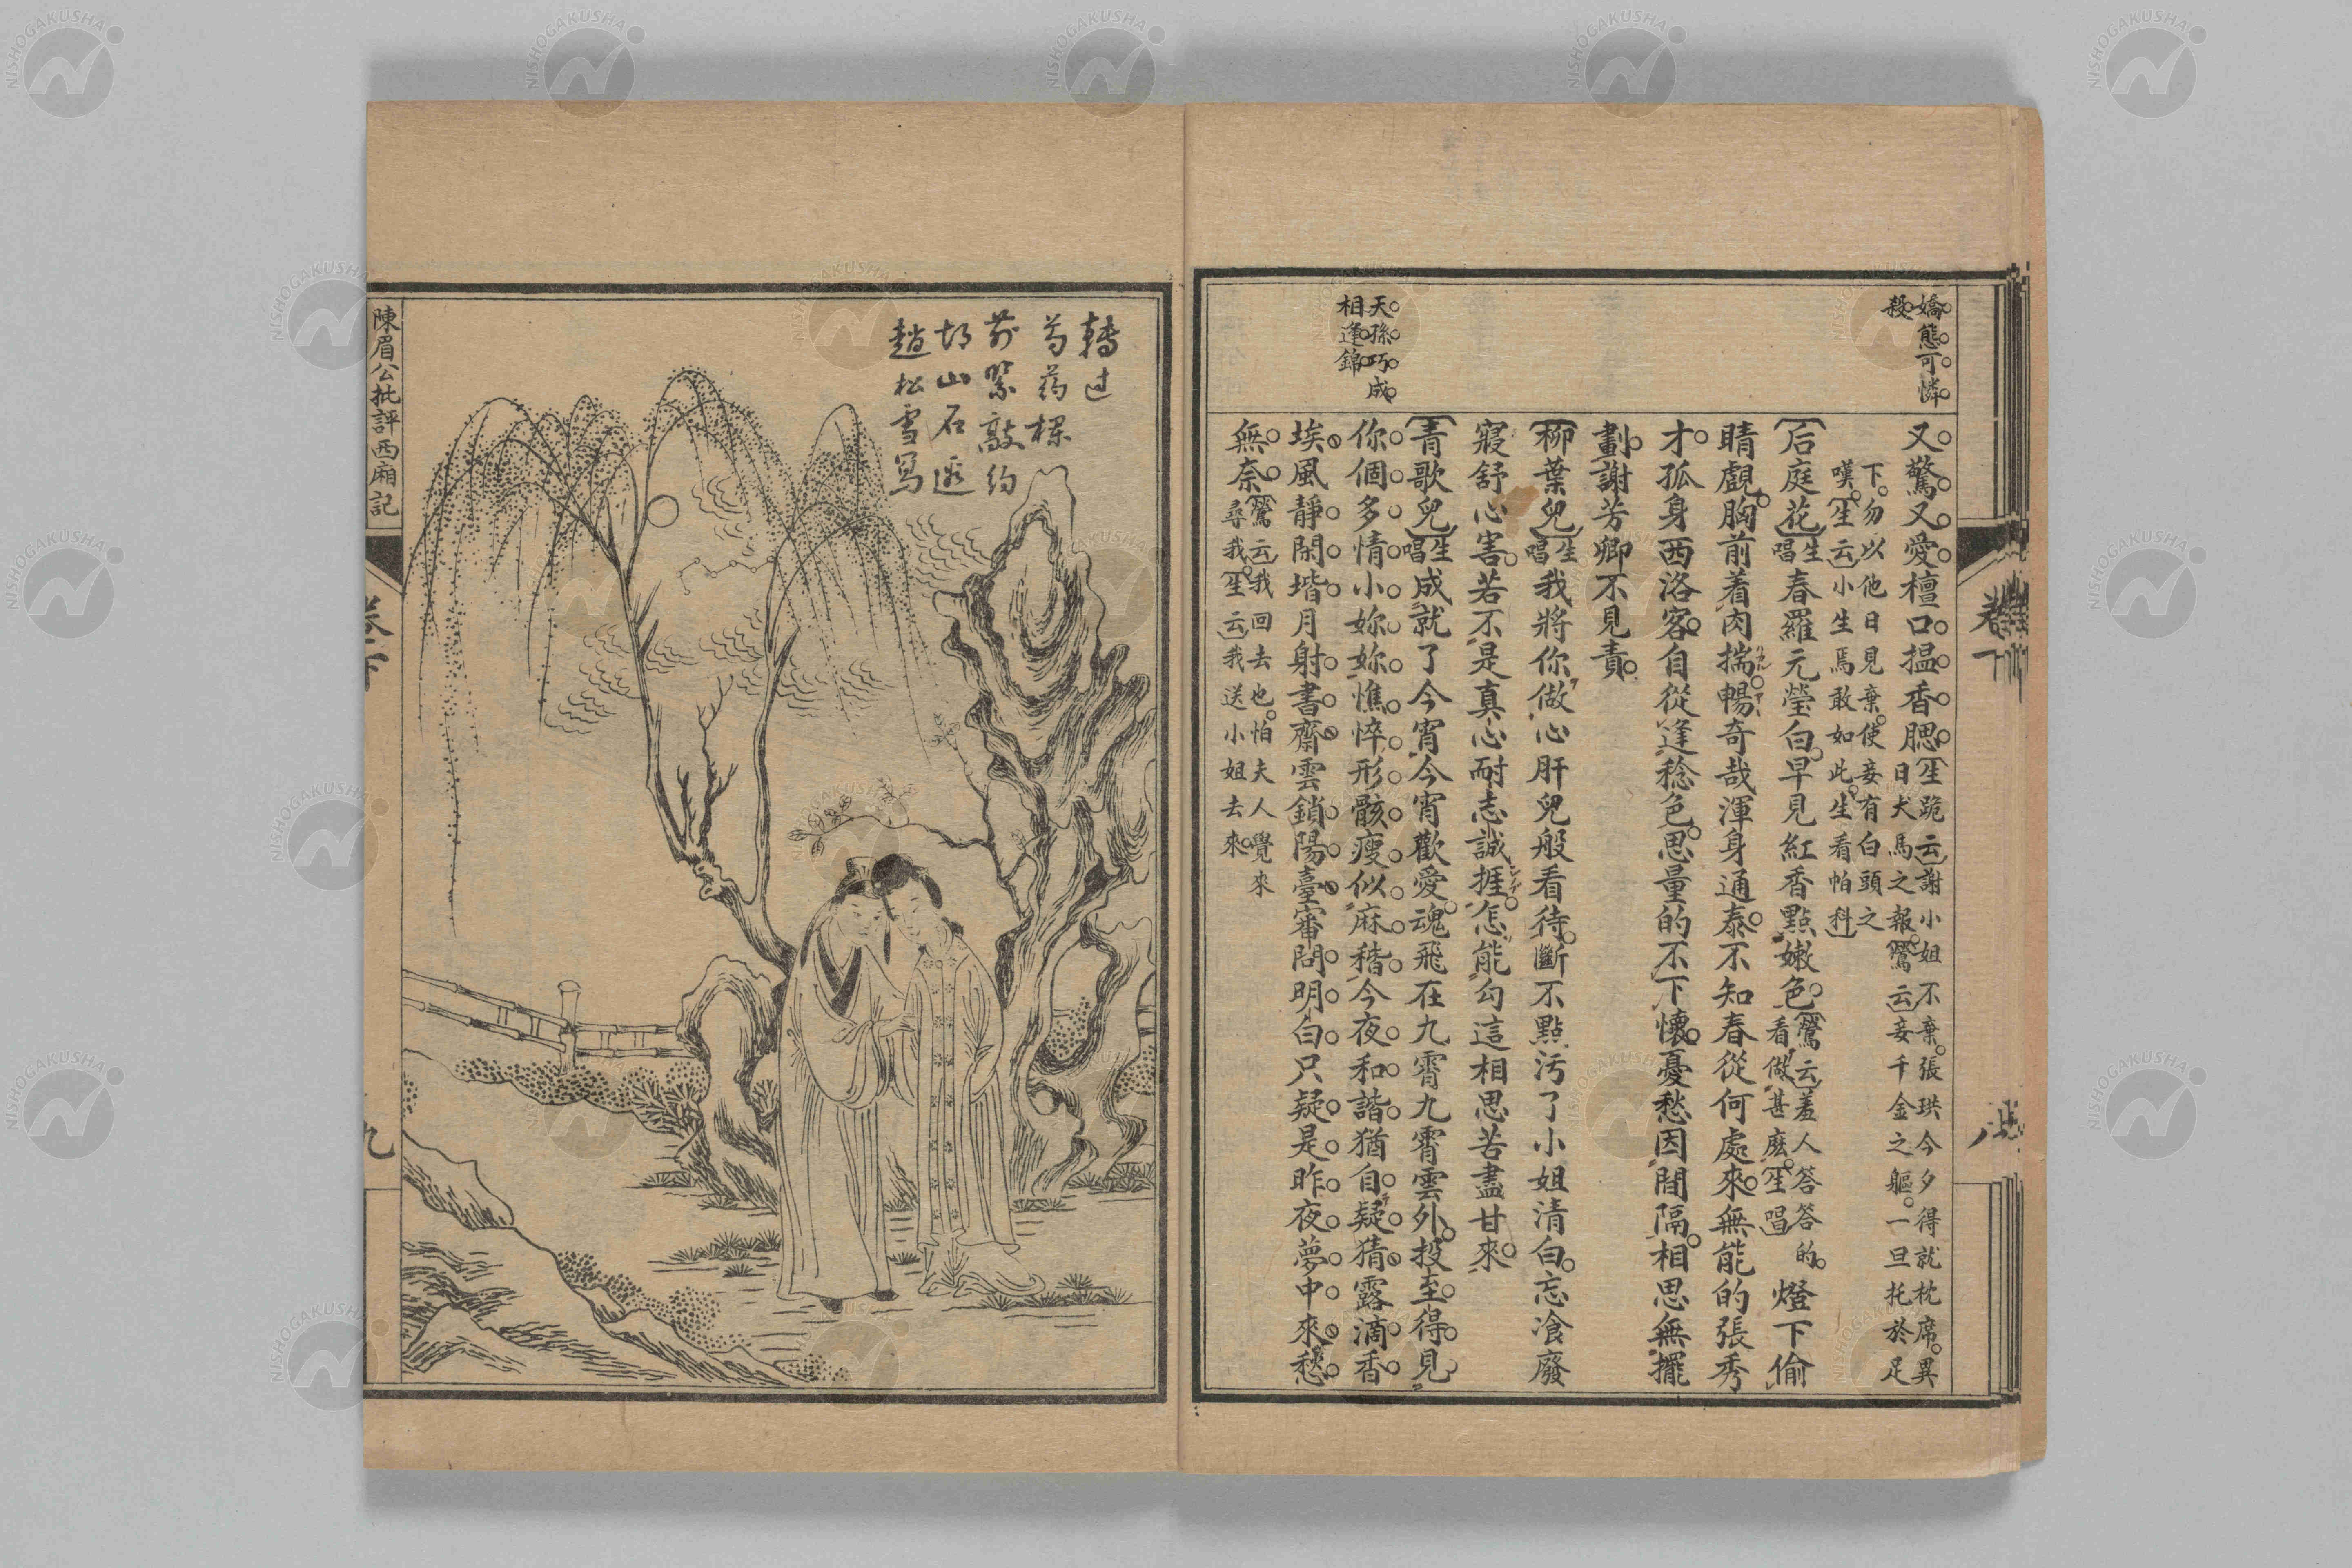 嬌態可憐
殺
天孫巧成
相逢錦
又驚又愛檀口揾香腮〔生跪云〕謝小姐不棄張珙今夕得就枕席異
日犬馬之報〔鶯云〕妾千金之軀一旦托於足
下勿以他日見棄使妾有白頭之
嘆〔生云〕小生焉敢如此生看帕科〕
〔后庭花〕生唱春羅元瑩白早見紅香點嫩色〔鶯云〕羞人答答的看做甚麽〔生唱〕燈下偷
睛覷胸前着肉揣暢奇哉渾身通泰不知春從何處來無能的張秀
才孤身西洛客自從逢稔色思量的不下懷憂愁因間隔相思無擺
劃謝芳卿不見責
〔柳葉兒〕生唱我將你做心肝兒般看待斷不點污了小姐清白忘飡廢
寢舒心害若不是真心耐志誠捱怎能勾這相思苦盡甘來
〔青歌兒〕生唱成就了今宵今宵歡愛魂飛在九霄九霄雲外投至得見
你個多情小妳妳憔悴形骸瘦似麻稭今夜和諧猶自疑猜露滴香
埃風靜閑堦月射書齋雲鎖陽臺審問明白只疑是昨夜夢中來愁
無奈〔鶯云〕我回去也怕夫人覺來
尋我〔生云〕我送小姐去來
卷下
轉过
芍药欄
前緊敲約
胡山石邊
趙松雪寫
陳眉公批評西廂記
卷下
九
NISHOGAKUSHA